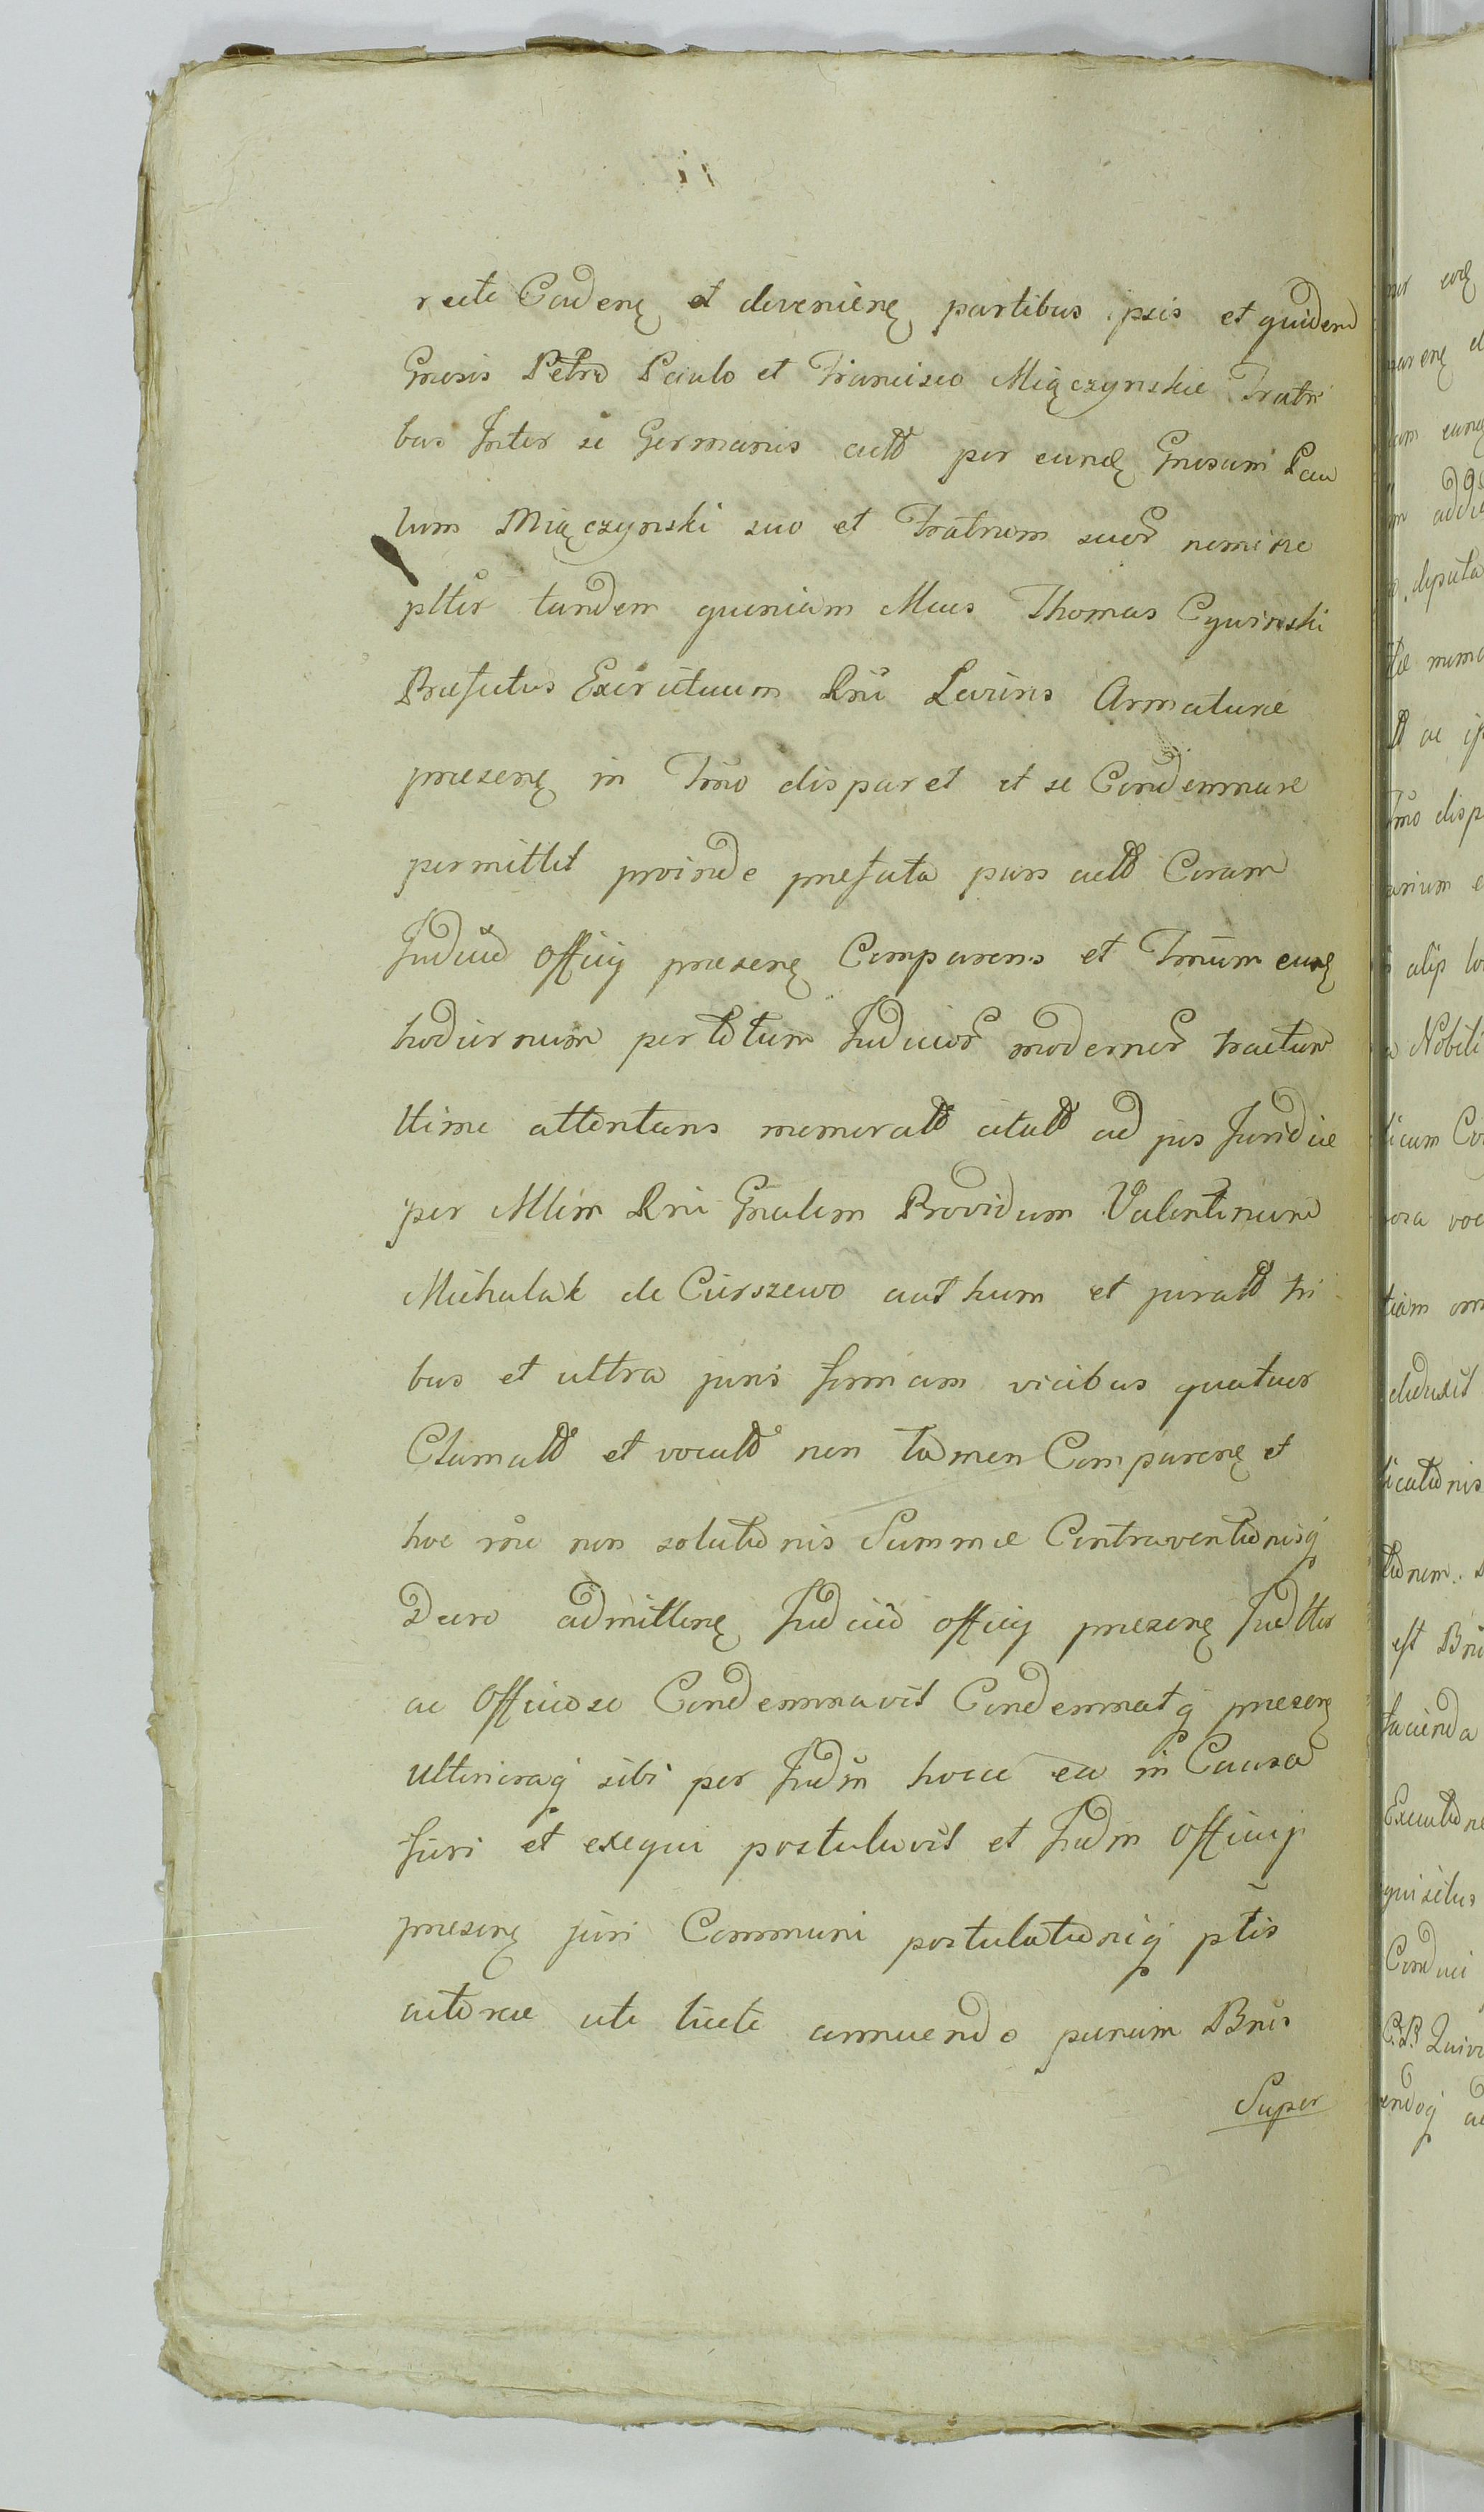 recte Caden et devenien partibus ipsis et quidem
Gnosis Petro Paulo et Francisco Miączynskie Fratri
bus Inter se Germanis actt per eund Gnosum Pau
lum Miączynski suo et Fratrum suor nomine
plttr tandem quoniam Mcus Thomas Cywinski
Praefatus Exercituum Rni Levius Armaturae
praesen in Tmo disparet et se Condemnare
permittit proinde praefata pars actt Coram
Judicio Officij praesen Comparens et Tminum eund
hodiernum per totum Judicior modernor tractum
ltime attentans memoratt citatt ad jus Juridice
per Mlim Rni Gnalem Providum Valentinum
Michalak de Cierszewo authum et juratt tri
bus et ultra juris formam vicibus quatuor
Clamatt et vocatt non tamen Comparen et
hoc rne non solutionis Summae Contraventionisq
Dcero admitten Judicio officij praesen Judttr
ac Officiose Condemnavit Condemnatq praesen
Ulterioraq sibi per Judm hocce ea in Causa
fieri et exequi postulavit et Judm Officij
praesen juri Communi postulationiq ptis
actoreae uti licite annuendo panam Bnis
Super